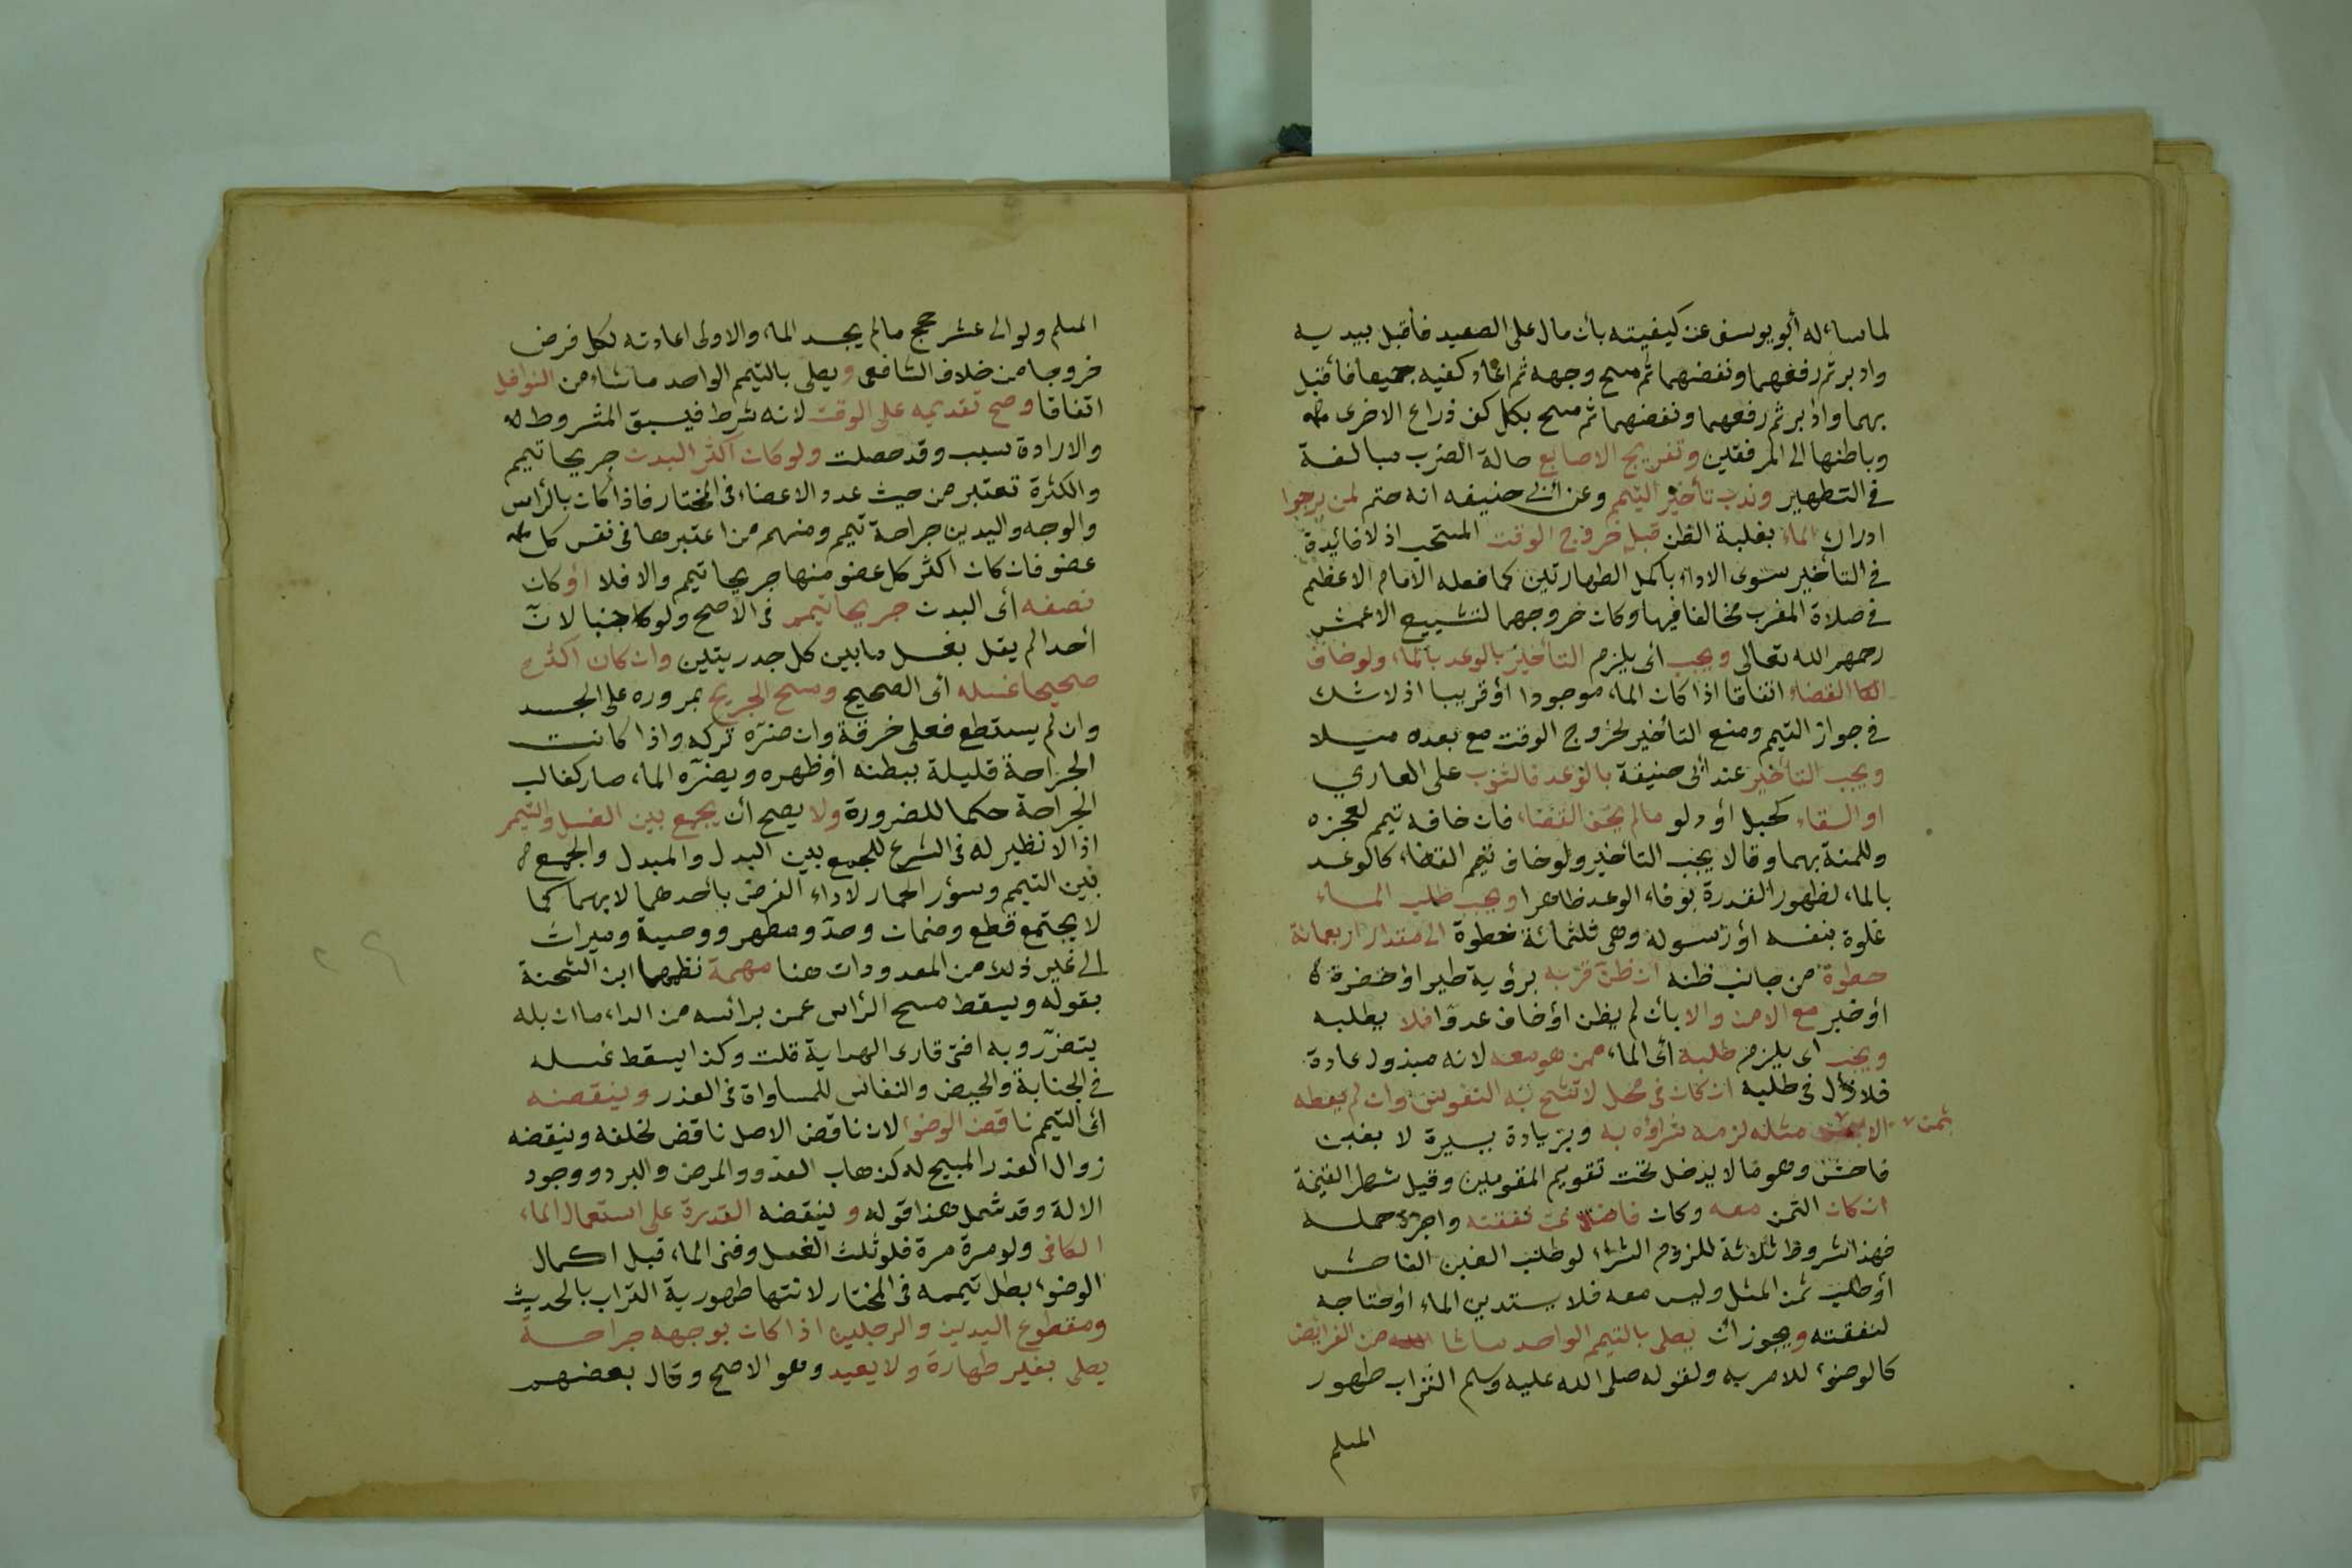 لما ساءله أبو يوسف عن كيفيته بأن مال على الصعيد فأقبل بيديه
وادبر ثم رفعهما ونفضهما ثم مسح وجهه ثم اعاد كفيه جميعا فأقبل
بهما وادبر ثم رفعهما ونفضهما ثم مسح بكل كف ذراع الاخرى
وباطنها الى المرفقين وتفريج الاصابع حالة الضرب مبالغة
في التطهير وندب تأخير التيمم وعن أبي حنيفه انه حتم لمن يرجوا
ادراك الماء بغلبة الظن قبل خروج الوقت المستحب اذ لا فائدة
في التأخير سوى الاداء بأكمل الطهارتين كما فعله الامام الاعظم
في صلاة المغرب مخالفا فيها وكان خروجهما لتشييع الاعمش
رحمهم الله تعالى ويجب أى يلزم التأخير بالوعد بالماء ولو خاف
القضاء اتفاقا اذا كان الماء موجودا أو قريبا اذ لا شك
في جواز التيمم ومنع التأخير لخروج الوقت مع بعده ميلا
ويجب التأخير عند أبى حنيفة بالوعد بالثوب على العاري
او السقاء كحبل أو دلو مالم يخف القضاء فان خافه تيمم لعجزه
وللمنة بهما وقالا يجب التأخير ولو خاف القضاء كالوعد
بالماء لظهور القدرة بوفاء الوعد ظاهرا ويجب طلب الماء
غلوة بنفسه أو رسوله وهى ثلثمائة خطوة الى مقدار اربعمائة
خطوة من جانب ظنه ان ظن قربه برؤية طير او خضرة
أو خبر مع الامن والا بأن لم يظن أو خاف عدوا فلا يطلبه
ويجب اى يلزم طلبه أى الماء ممن هو معه لانه مبذول عادة
فلا ذل فى طلبه ان كان فى محل لا تشح به النفوس وان لم يعطه
الا بثمن مثله لزمه شراؤه به وبزيادة يسيرة لا بغبن
فاحش وهو مالا يدخل تحت تقويم المقومين وقيل شطر القيمة
ان كان الثمن معه وكان فاضلا عن نفقته واجرة حمله
فهذا شروط ثلاثة للزوم الشراء لو طلب الغبن الفاحش
أو طلب ثمن المثل وليس معه فلا يستدين الماء او احتاجه
لنفقته ويجوز أن يصلى بالتيمم الواحد ماشا من الفرائض
كالوضوء للامر به ولقوله صلى الله عليه وسلم التراب طهور
المسلم
المسلم ولو الى عشر حجج مالم يجد الماء والاولى اعادته لكل فرض
خروجا من خلاف الشافعى ويصلى بالتيمم الواحد ماشاء من النوافل
اتفاقا وصح تقديمه على الوقت لانه شرط فيسبق المشروط
والارادة سبب وقد حصلت ولو كان أكثر البدن جريحا تيمم
والكثرة تعتبر من حيث عدد الاعضاء فى المختار فاذا كان بالرأس
والوجه واليدين جراحة تيمم ومنهم من اعتبرها فى نفس كل
عضو فان كان اكثر كل عضو منها جريحا تيمم والا فلا او كان
نصفه أى البدن جريحا تيمم فى الأصح ولو كان جنبا لان
أحدا لم يقل بغسل ما بين كل جدريتين وان كان اكثره
صحيحا غسله أى الصحيح ومسح الجريح بمروره على الجسد
وان لم يستطع فعلى خرقة وان ضره تركه واذا كانت
الجراحة قليلة ببطنه أو ظهره ويضره الماء صار كغالب
الجراحة حكما للضرورة ولا يصح أن يجمع بين الغسل والتيمم
اذ لا نظير له فى الشرع للجمع بين البدل والمبدل والجمع
بين التيمم وسؤر الحمار لاداء الفرض بأحدهما لا بهما كما
لا يجتمع قطع وضمان وحد ومهر ووصية وميراث
الى غير ذلك من المعدودات هنا مهمة نظمها ابن الشحنة
بقوله ويسقط مسح الرأس عمن برأسه من الداء ما ان بله
يتضرر وبه افتى قارى الهداية قلت وكذا يسقط غسله
فى الجنابة والحيض والنفاس للمساواة فى العذر وينقضه
أى التيمم ناقض الوضوء لان ناقض الاصل ناقض لخلفه وينقضه
زوال العذر المبيح له كذهاب العدو والمرض والبرد ووجود
الالة وقد شمل هذا قوله وينقضه القدرة على استعمال الماء
الكافى ولو مرة مرة فلو ثلث الغسل وفنى الماء قبل اكمال
الوضوء بطل تيممه فى المختار لانتها طهورية التراب بالحديث
ومقطوع اليدين والرجلين اذا كان بوجهه جراحة
يصلى بغير طهارة ولا يعيد وهو الاصح وقال بعضهم